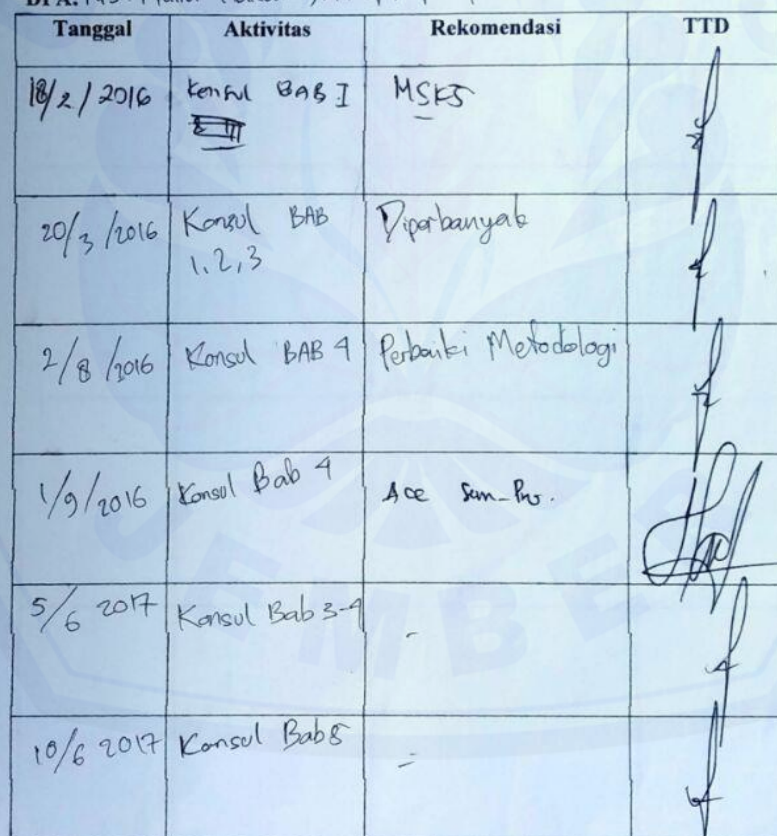 Tanggal Aktivitas Rekomendasi TTD
18/2/2016 Konsul BAB I MSKS
20/3/2016 Konsul BAB 1,2,3 Diperbanyak
2/8/2016 Konsul BAB 4 Perbaiki Metodologi
1/9/2016 Konsul Bab 4 Acc Sem-Pro.
5/6 2017 Konsul Bab 3-4 -
10/6 2017 Konsul Bab 5 -
JEMBER